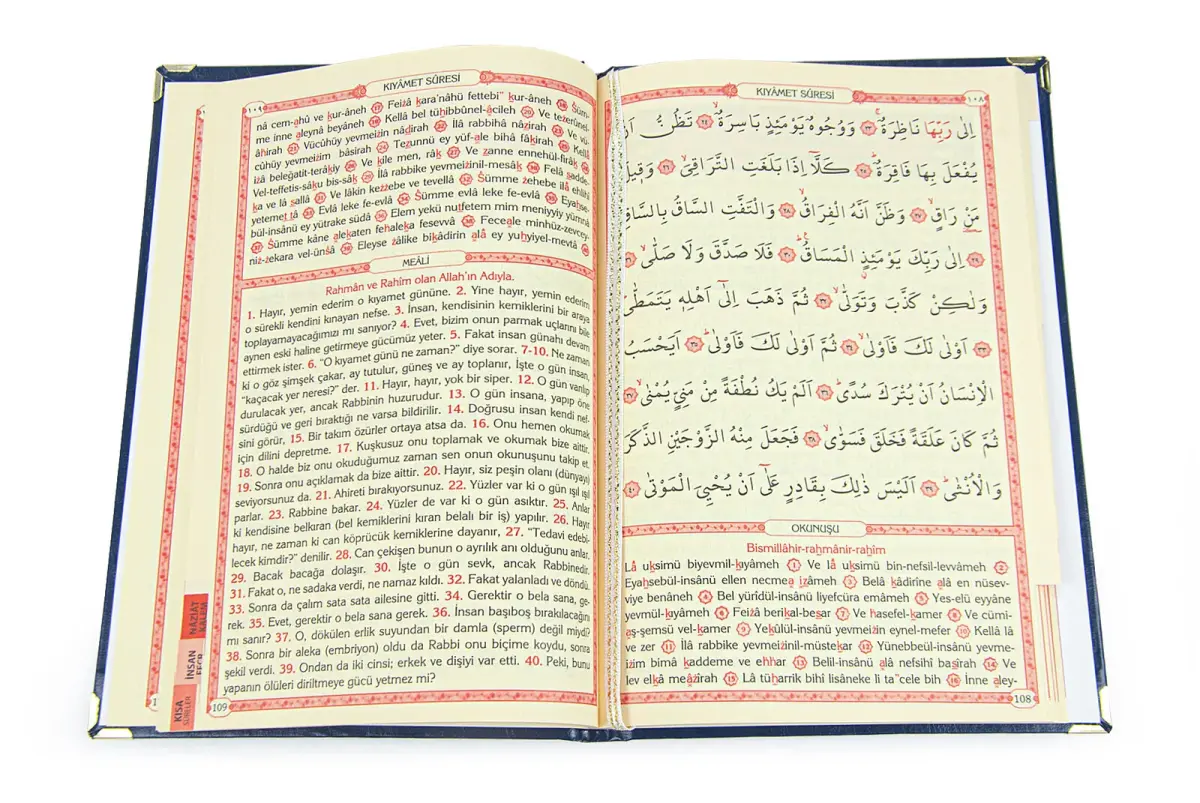 KIYÂMET SÛRESİ
١٠٨
اِلٰى رَبِّهَا نَاظِرَةٌۚ ﴿٢٣﴾ وَوُجُوهٌ يَوْمَئِذٍ بَاسِرَةٌۙ ﴿٢٤﴾ تَظُنُّ اَنْ
يُفْعَلَ بِهَا فَاقِرَةٌۜ ﴿٢٥﴾ كَلَّٓا اِذَا بَلَغَتِ التَّرَاقِيَۙ ﴿٢٦﴾ وَق۪يلَ
مَنْ رَاقٍۙ ﴿٢٧﴾ وَظَنَّ اَنَّهُ الْفِرَاقُۙ ﴿٢٨﴾ وَالْتَفَّتِ السَّاقُ بِالسَّاقِۙ
﴿٢٩﴾ اِلٰى رَبِّكَ يَوْمَئِذٍۨ الْمَسَاقُۜ ﴿٣٠﴾ فَلَا صَدَّقَ وَلَا صَلّٰىۙ ﴿٣١﴾
وَلٰكِنْ كَذَّبَ وَتَوَلّٰىۙ ﴿٣٢﴾ ثُمَّ ذَهَبَ اِلٰٓى اَهْلِه۪ يَتَمَطّٰىۜ
﴿٣٣﴾ اَوْلٰى لَكَ فَاَوْلٰىۙ ﴿٣٤﴾ ثُمَّ اَوْلٰى لَكَ فَاَوْلٰىۜ ﴿٣٥﴾ اَيَحْسَبُ
الْاِنْسَانُ اَنْ يُتْرَكَ سُدًىۜ ﴿٣٦﴾ اَلَمْ يَكُ نُطْفَةً مِنْ مَنِيٍّ يُمْنٰىۙ ﴿٣٧﴾
ثُمَّ كَانَ عَلَقَةً فَخَلَقَ فَسَوّٰىۙ ﴿٣٨﴾ فَجَعَلَ مِنْهُ الزَّوْجَيْنِ الذَّكَرَ
وَالْاُنْثٰىۜ ﴿٣٩﴾ اَلَيْسَ ذٰلِكَ بِقَادِرٍ عَلٰٓى اَنْ يُحْيِيَ الْمَوْتٰى ﴿٤٠﴾
OKUNUŞU
Bismillâhir-rahmânir-rahîm
Lâ uksimü biyevmil-kıyâmeh 1 Ve lâ uksimü bin-nefsil-levvâmeh 2
Eyahsebül-insânü ellen necmea izâmeh 3 Belâ kâdirîne alâ en nüsev-
viye benâneh 4 Bel yürîdül-insânü liyefcüra emâmeh 5 Yes-elü eyyâne
yevmül-kıyâmeh 6 Feizâ berikal-besar 7 Ve hasefel-kamer 8 Ve cümi-
aş-şemsü vel-kamer 9 Yekûlül-insânü yevmeizin eynel-mefer 10 Kellâ lâ
ve zer 11 İlâ rabbike yevmeizinil-müstekar 12 Yünebbeül-insânü yevme-
izim bimâ kaddeme ve ehhar 13 Belil-insânü alâ nefsihî basîrah 14 Ve
lev elkâ meâzîrah 15 Lâ tüharrik bihî lisâneke li ta'cele bih 16 İnne aley-
108
١٠٩
KIYÂMET SÛRESİ
nâ cem-ahû ve kur-âneh 17 Feizâ kara'nâhü fettebi" kur-âneh 18 Süm-
me inne aleynâ beyâneh 19 Kellâ bel tühibbûnel-âcileh 20 Ve tezerûnel-
âhirah 21 Vücûhüy yevmeizin nâdirah 22 İlâ rabbihâ nâzirah 23 Ve vü-
cûhüy yevmeizim bâsirah 24 Tezunnü ey yüf-ale bihâ fâkirah 25 Kellâ
izâ beleğatit-terakiy 26 Ve kîle men, râk 27 Ve zanne ennehül-firâk 28
Vel-teffetis-sâku bis-sâk 29 İlâ rabbike yevmeizinil-mesâk 30 Felâ sadde-
ka ve lâ sallâ 31 Ve lâkin kezzebe ve tevellâ 32 Sümme zehebe ilâ ehlihî
yetemet tâ 33 Evlâ leke fe-evlâ 34 Sümme evlâ leke fe-evlâ 35 Eyahse-
bül-insânü ey yütrake südâ 36 Elem yekü nutfetem mim meniyyiy yümnâ
37 Sümme kâne alekaten fehaleka fesevvâ 38 Feceale minhüz-zevcey-
niz-zekara vel-ünsâ 39 Eleyse zâlike bikâdirin alâ ey yuhyiyel-mevtâ 40
MEÂLİ
Rahmân ve Rahîm olan Allah'ın Adıyla.
1. Hayır, yemin ederim o kıyamet gününe. 2. Yine hayır, yemin ederim
o sürekli kendini kınayan nefse. 3. İnsan, kendisinin kemiklerini bir araya
toplayamayacağımızı mı sanıyor? 4. Evet, bizim onun parmak uçlarını bile
aynen eski haline getirmeye gücümüz yeter. 5. Fakat insan günahı devam
ettirmek ister. 6. "O kıyamet günü ne zaman?" diye sorar. 7-10. Ne zaman
ki o göz şimşek çakar, ay tutulur, güneş ve ay toplanır, İşte o gün insan,
"kaçacak yer neresi?" der. 11. Hayır, hayır, yok bir siper. 12. O gün varılıp
durulacak yer, ancak Rabbinin huzurudur. 13. O gün insana, yapıp öne
sürdüğü ve geri bıraktığı ne varsa bildirilir. 14. Doğrusu insan kendi nef-
sini görür, 15. Bir takım özürler ortaya atsa da. 16. Onu hemen okumak
için dilini depretme. 17. Kuşkusuz onu toplamak ve okumak bize aittir.
18. O halde biz onu okuduğumuz zaman sen onun okunuşunu takip et.
19. Sonra onu açıklamak da bize aittir. 20. Hayır, siz peşin olanı (dünyayı)
seviyorsunuz da. 21. Ahireti bırakıyorsunuz. 22. Yüzler var ki o gün ışıl ışıl
parlar. 23. Rabbine bakar. 24. Yüzler de var ki o gün asıktır. 25. Anlar
ki kendisine belkıran (bel kemiklerini kıran belalı bir iş) yapılır. 26. Hayır
hayır, ne zaman ki can köprücük kemiklerine dayanır, 27. "Tedavi edebi-
lecek kimdir?" denilir. 28. Can çekişen bunun o ayrılık anı olduğunu anlar.
29. Bacak bacağa dolaşır. 30. İşte o gün sevk, ancak Rabbinedir.
31. Fakat o, ne sadaka verdi, ne namaz kıldı. 32. Fakat yalanladı ve döndü.
33. Sonra da çalım sata sata ailesine gitti. 34. Gerektir o bela sana, ge-
rek. 35. Evet, gerektir o bela sana gerek. 36. İnsan başıboş bırakılacağını
mı sanır? 37. O, dökülen erlik suyundan bir damla (sperm) değil miydi?
38. Sonra bir aleka (embriyon) oldu da Rabbi onu biçime koydu, sonra
şekil verdi. 39. Ondan da iki cinsi; erkek ve dişiyi var etti. 40. Peki, bunu
yapanın ölüleri diriltmeye gücü yetmez mi?
109
NÂZİÂT
KALEM
İNSAN
FECR
KISA
SÛRELER